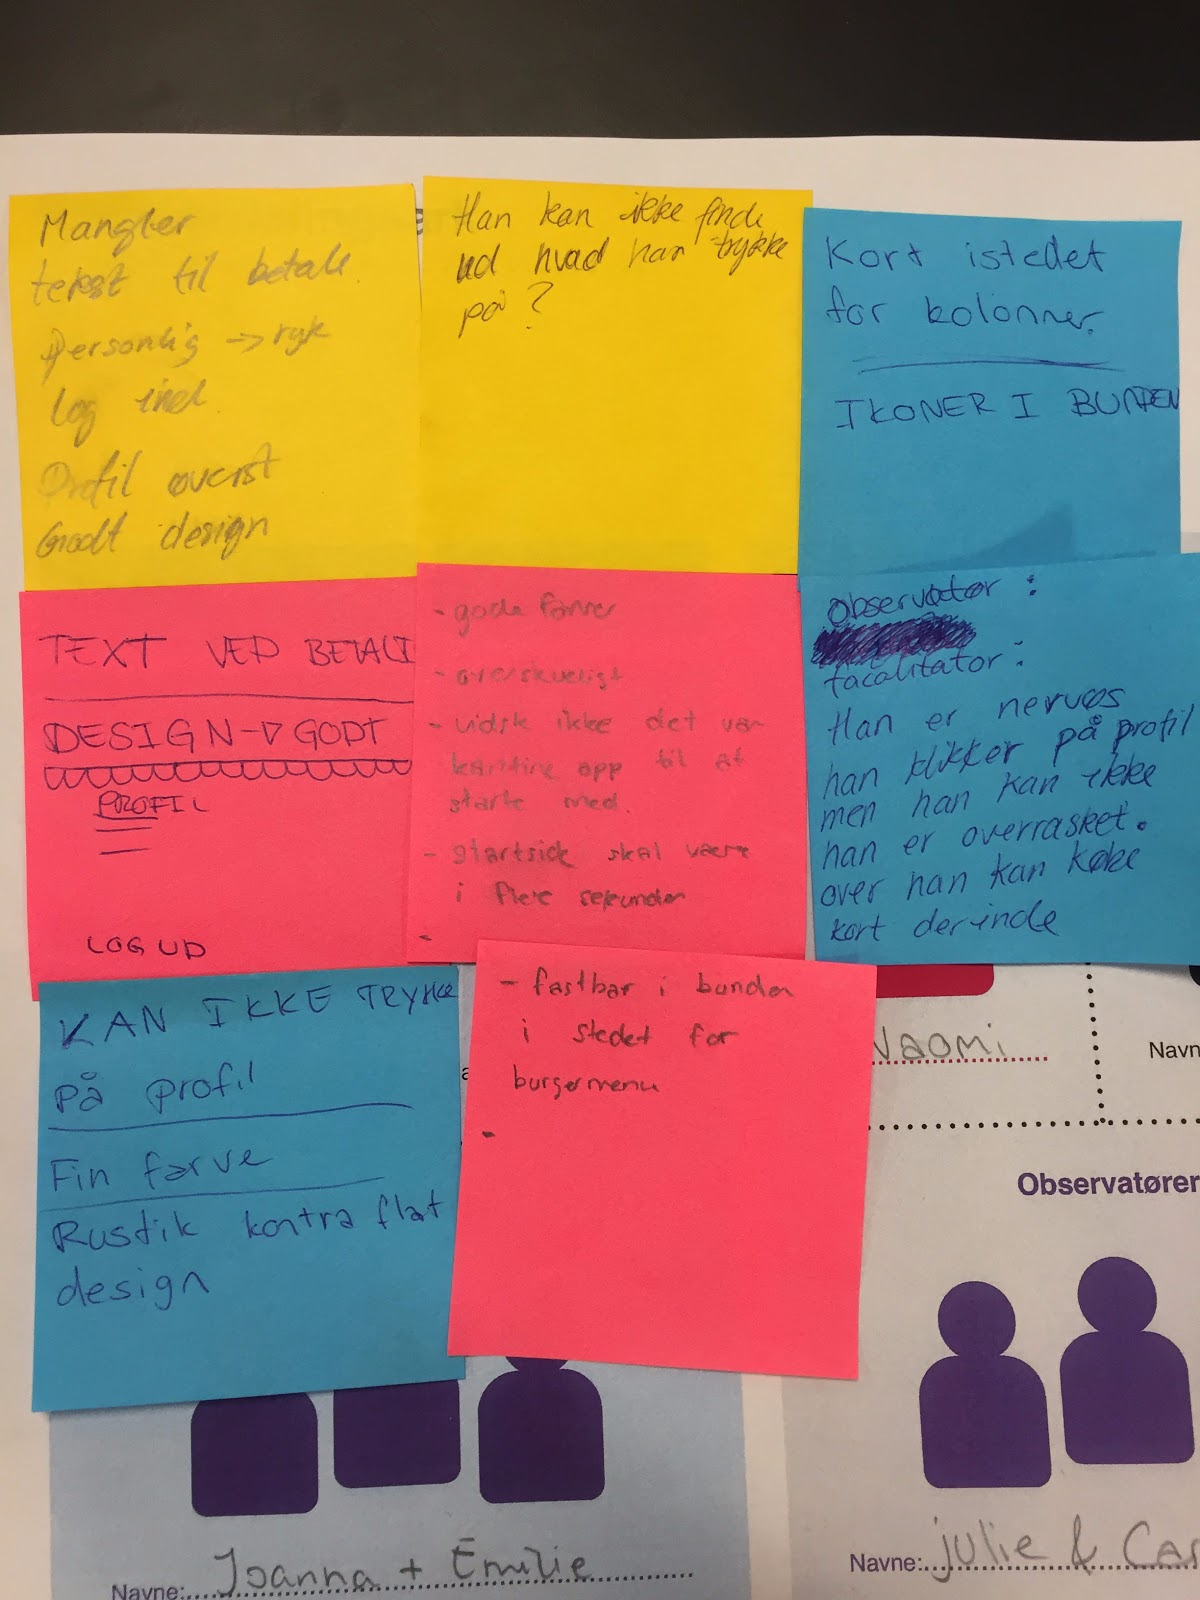 Mangler
tekst til betale
Personlig -> ryk
Log ind
Profil øverst
Godt design
Han kan ikke finde
ud hvad han trykke
på?
Kort istedet
for kolonner.
IKONER I BUNDEN
TEXT VED BETALI
DESIGN -> GODT
PROFIL
LOG UD
- gode farver
- overskueligt
- vidste ikke det var
kantine app til at
starte med.
- startside skal være
i flere sekunder
-
observatør:
facalitator:
Han er nervøs
han klikker på profil
men han kan ikke
han er overrasket.
over han kan købe
kort derinde
KAN IKKE TRYKKE
på profil
Fin farve
Rustik kontra flat
design
- fastbar i bunden
i stedet for
burgermenu
-
Naomi
Navn
Observatører
Navne: Joanna + Emilie
Navne: Julie & Ca